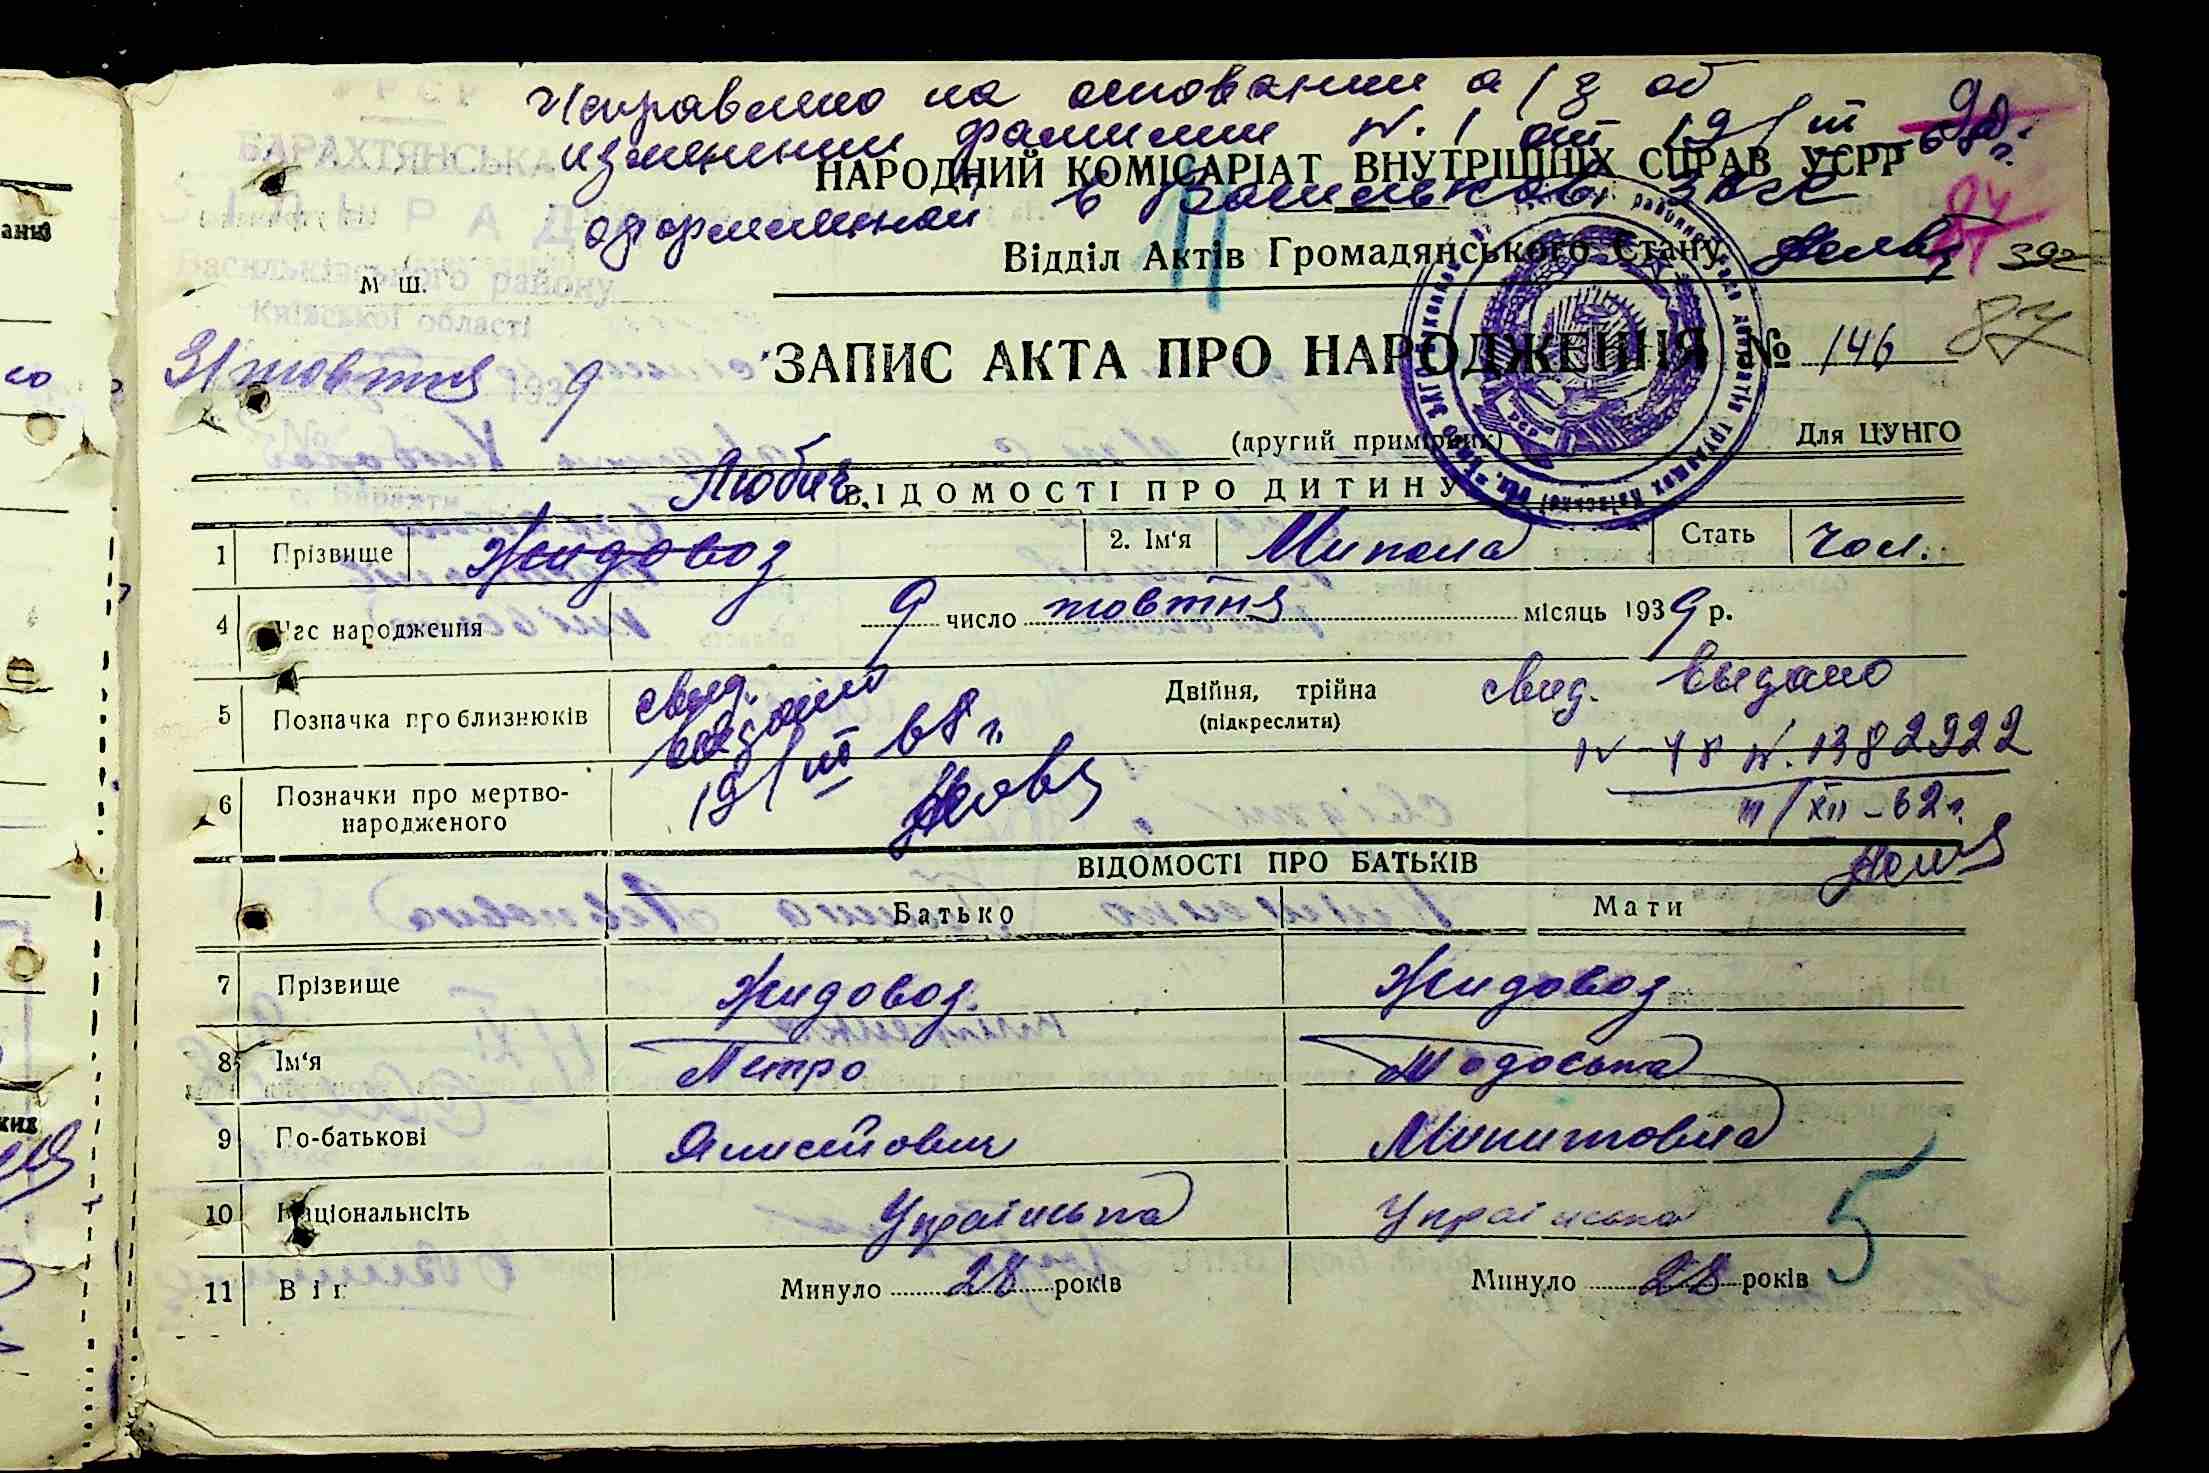 Исправлено на основании а/з об
изменении фамилии N. 1 от 19/III 68 г.
НАРОДНИЙ КОМІСАРІАТ ВНУТРІШНІХ СПРАВ УСРР
оформленной в Васильков. ЗАГС
Відділ Актів Громадянського Стану
БАРАХТЯНСЬКА
СІЛЬРАДА
Васильківського району
Київської області
М Ш.
11
392
87
31 жовтня 1939
ЗАПИС АКТА ПРО НАРОДЖЕННЯ № 146
(другий примірник) Для ЦУНГО
Любич
ВІДОМОСТІ ПРО ДИТИНУ
1 Прізвище Жидовоз 2. Ім'я Микола Стать Чол.
4 Час народження 9 число жовтня місяць 1939 р.
5 Позначка про близнюків Двійня, трійна
(підкреслити)
свид. выдано
19/III 68 г.
свид. выдано
N. 1382922
XII-62г.
6 Позначки про мертво-
народженого
ВІДОМОСТІ ПРО БАТЬКІВ
Батько Мати
7 Прізвище Жидовоз Жидовоз
8 Ім'я Петро Тодоська
9 По-батькові Микитовна
10 Національність Українська Українська
11 Вік Минуло 28 років Минуло 28 років
5